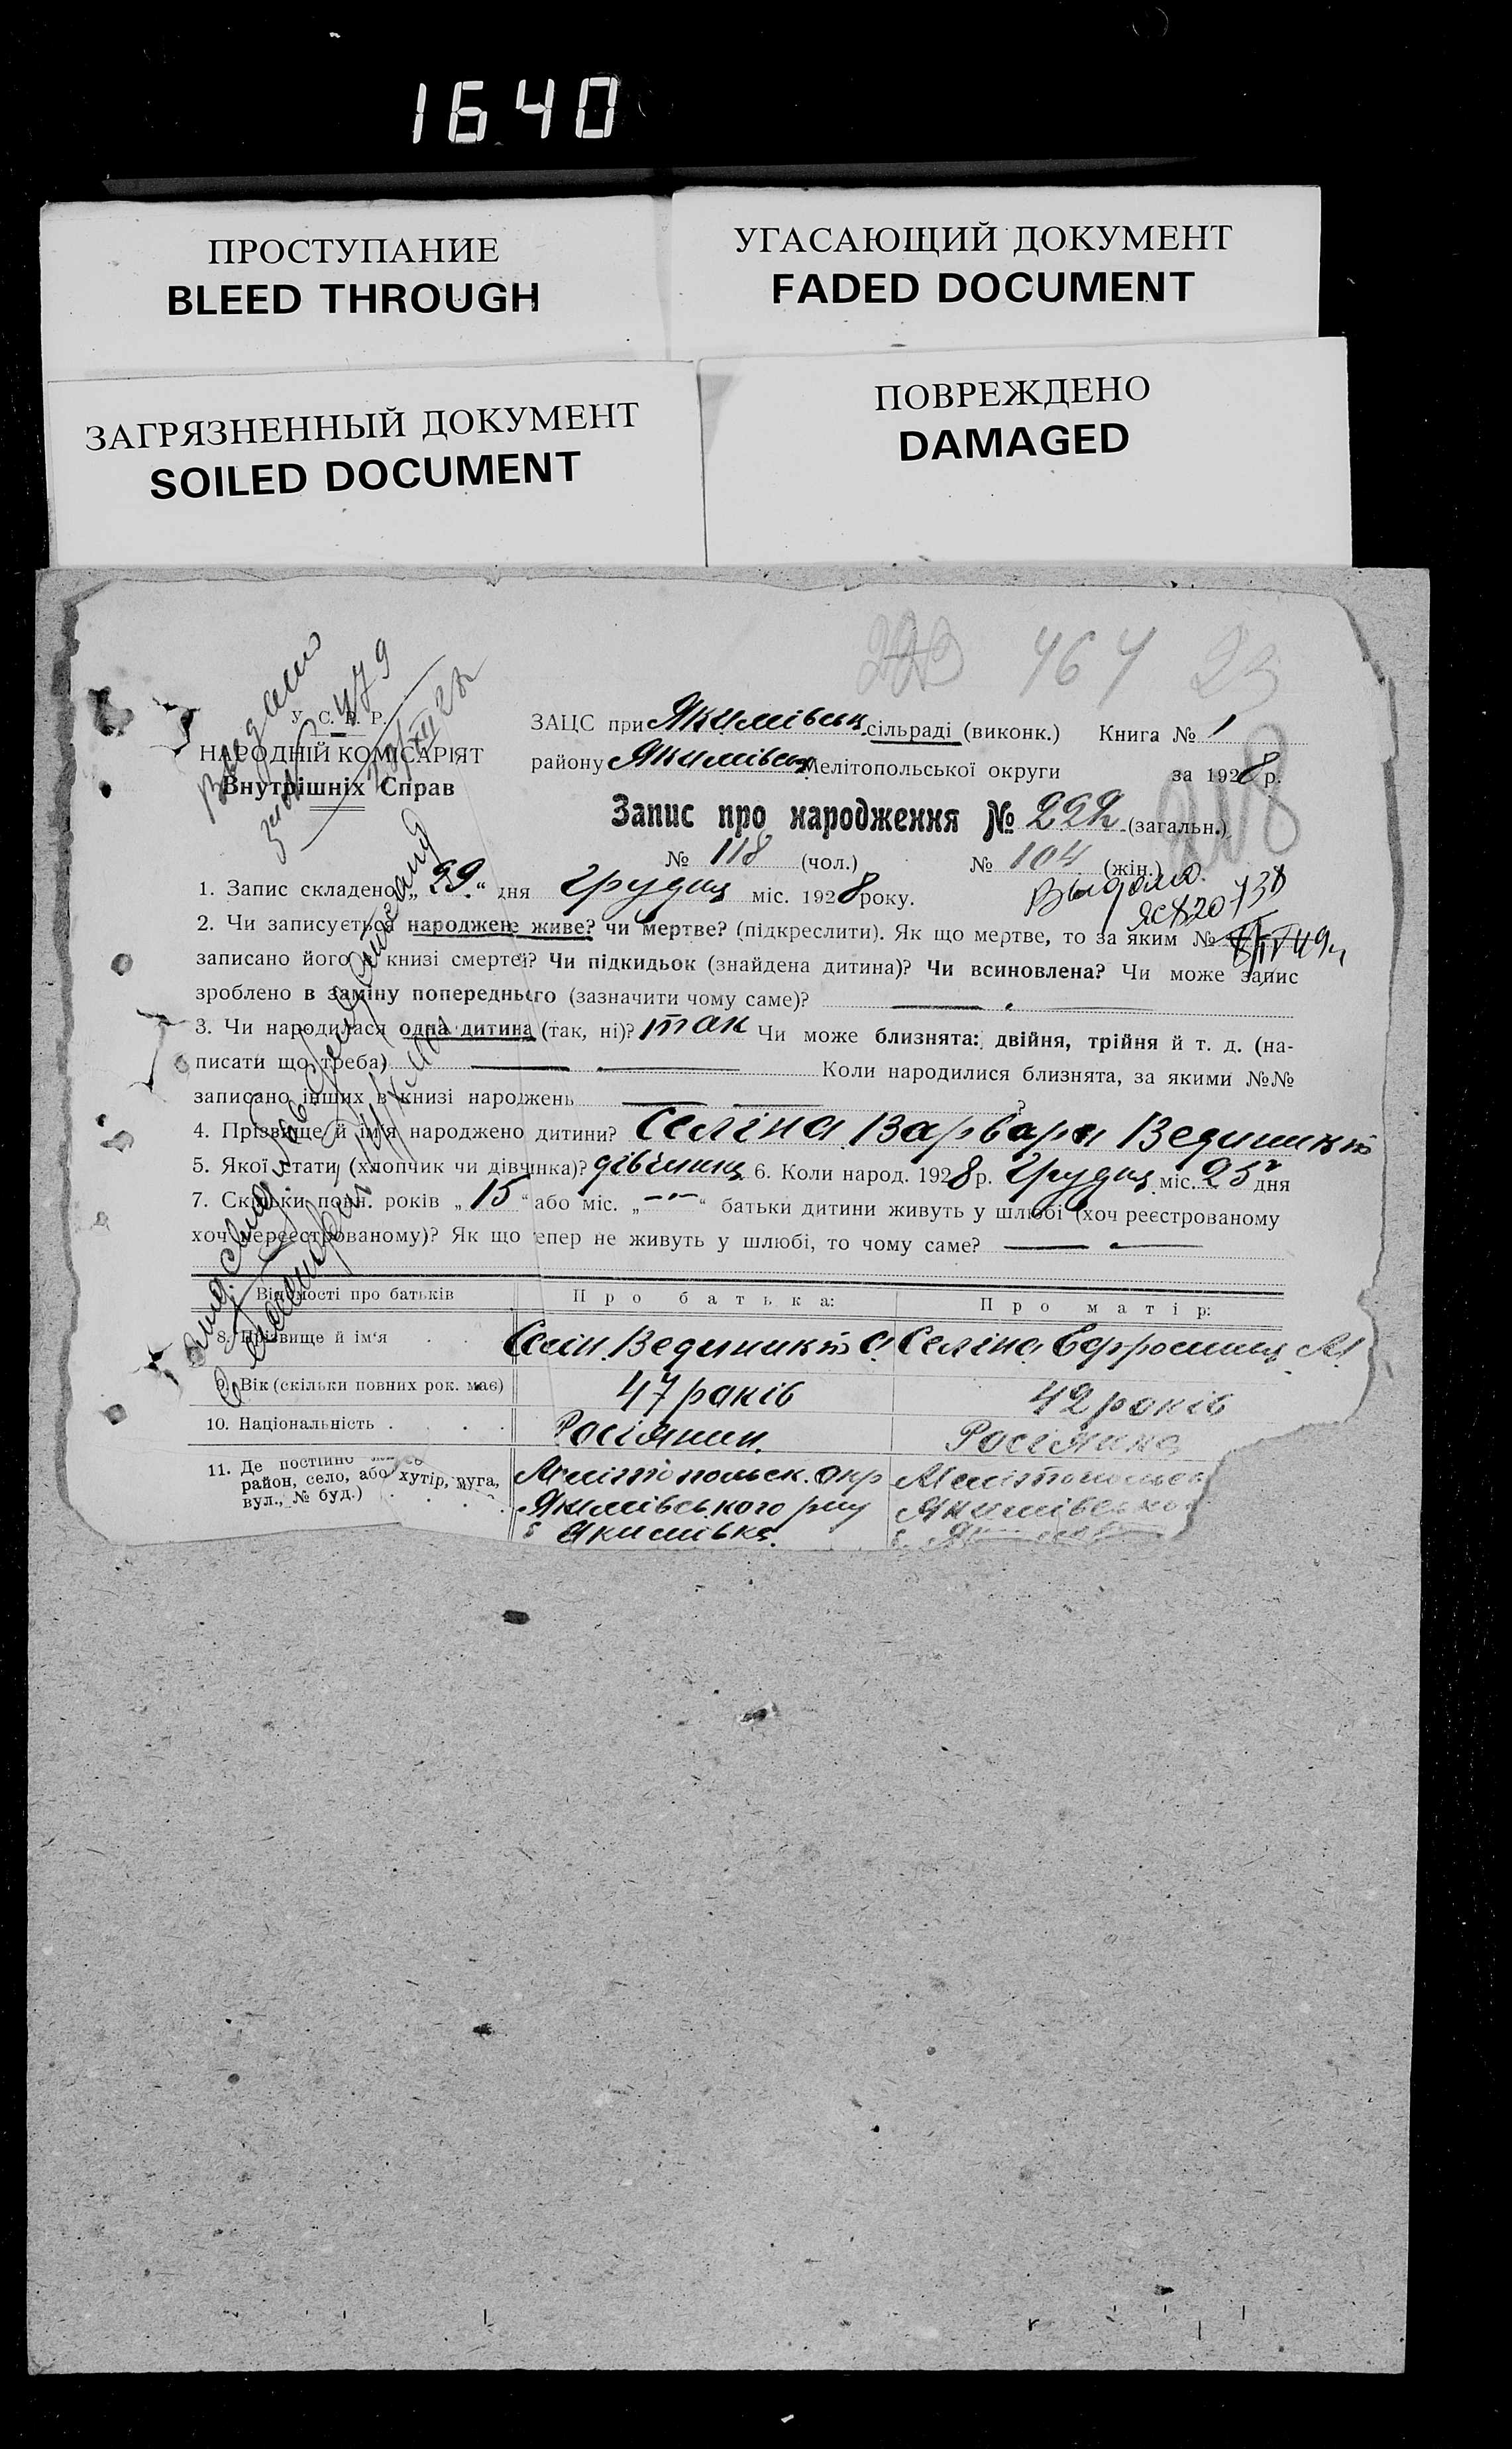 1640
ПРОСТУПАНИЕ
BLEED THROUGH
УГАСАЮЩИЙ ДОКУМЕНТ
FADED DOCUMENT
ЗАГРЯЗНЕННЫЙ ДОКУМЕНТ
SOILED DOCUMENT
ПОВРЕЖДЕНО
DAMAGED
464 23
У. С. Р. Р.
НАРОДНІЙ КОМІСАРІЯТ
Внутрішніх Справ
479
ЗАЦС при Якимівськ. сільраді (виконк.) Книга № 1
району Якимівськ Мелітопольської округи за 1928 р.
Запис про народження № 222 (загальн.)
218
№ 118 (чол.) № 104 (жін.)
Выдано
1. Запис складено „29“ дня Грудня міс. 1928 року.
2. Чи записується народжене живе? чи мертве? (підкреслити). Як що мертве, то за яким №
записано його в книзі смертей? Чи підкидьок (знайдена дитина)? Чи всиновлена? Чи може запис
зроблено в заміну попереднього (зазначити чому саме)?
3. Чи народилася одна дитина (так, ні)? так Чи може близнята: двійня, трійня й т. д. (на-
писати що треба) Коли народилися близнята, за якими №№
записано інших в книзі народжень ?
4. Прізвище й ім'я народжено дитини? Селіна Варвара Ведыникт
5. Якої стати (хлопчик чи дівчинка)? дівчинц 6. Коли народ. 1928 р. Грудня міс. 25 дня
7. Скільки повн. років „15“ або міс. „-“-“ батьки дитини живуть у шлюбі (хоч реєстрованому
хоч нереєстрованому)? Як що тепер не живуть у шлюбі, то чому саме?
Відомості про батьків Про батька: Про матір:
8. Прізвище й ім'я Селін Ведыникт А Селіна Ефросиния М
9. Вік (скільки повних рок. має) 47 раків 42 років
10. Національність Росіянин. Росіянка
11. Де постійно
район, село, або хутір, вуга,
вул., № буд.)
Мелітопольск. окр Мелітопольськ
Якимівського рну Якимівсько
с Якимівка.